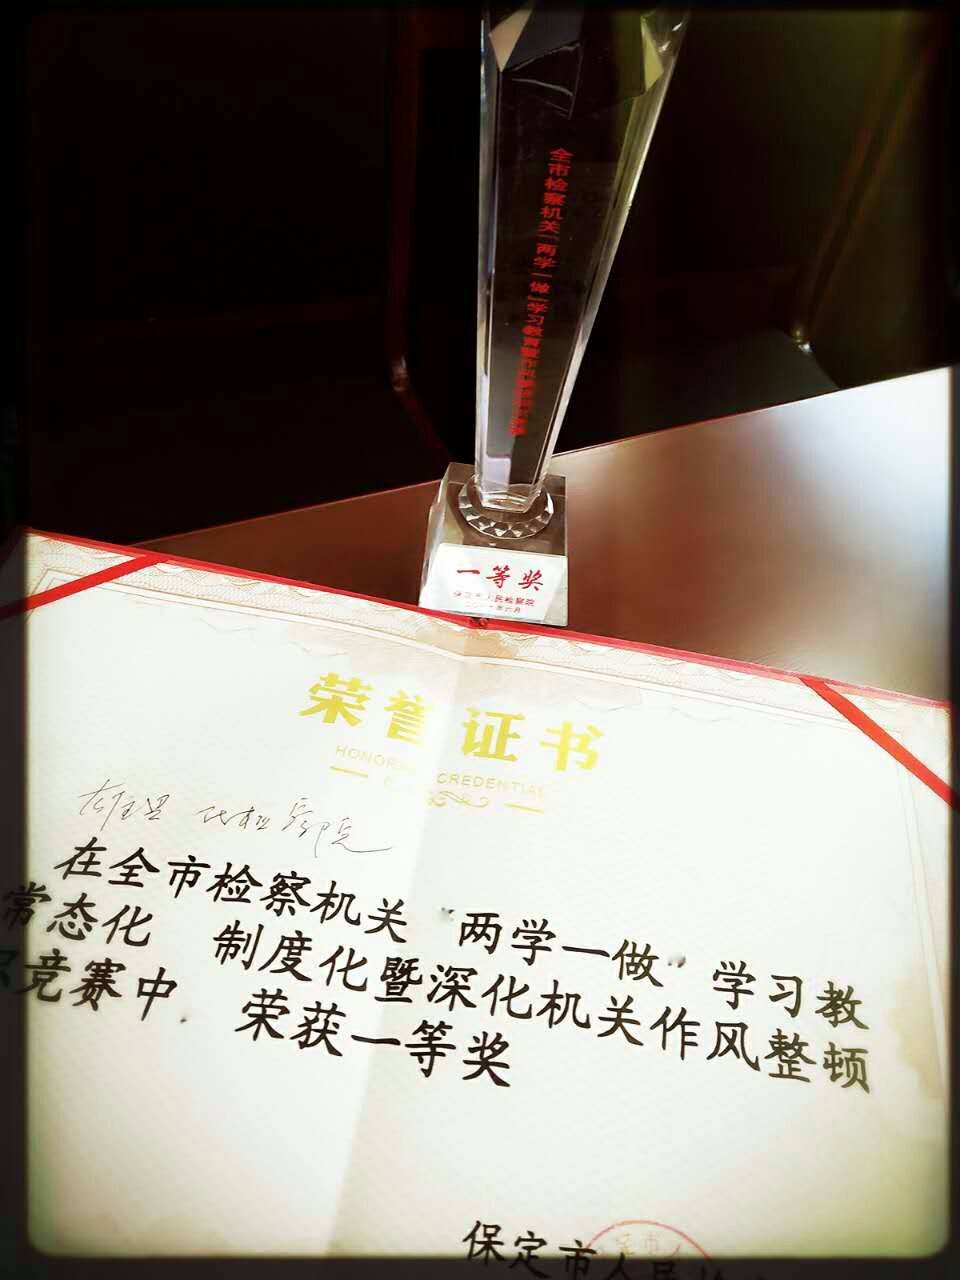 全市检察机关「两学一做」学习教育
一等奖
保定市人民检察院
荣誉证书
CREDENTIAL
在全市检察机关“两学一做”学习教
常态化 制度化暨深化机关作风整顿
竞赛中. 荣获一等奖
保定市人民